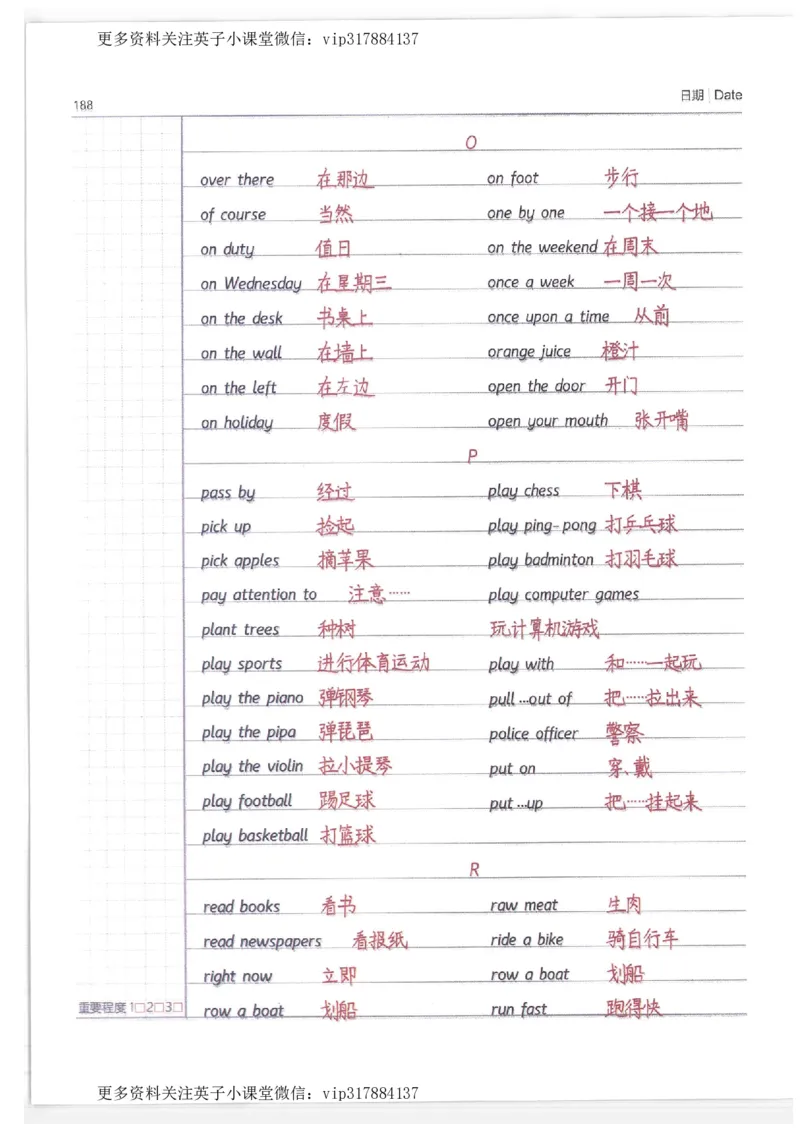 更多资料关注英子小课堂微信：vip317884137
188
日期 Date
O
over there 在那边 on foot 步行
of course 当然 one by one 一个接一个地
on duty 值日 on the weekend 在周末
on Wednesday 在星期三 once a week 一周一次
on the desk 书桌上 once upon a time 从前
on the wall 在墙上 orange juice 橙汁
on the left 在左边 open the door 开门
on holiday 度假 open your mouth 张开嘴
P
pass by 经过 play chess 下棋
pick up 捡起 play ping-pong 打乒乓球
pick apples 摘苹果 play badminton 打羽毛球
pay attention to 注意…… play computer games
plant trees 种树 玩计算机游戏
play sports 进行体育运动 play with 和……一起玩
play the piano 弹钢琴 pull …out of 把……拉出来
play the pipa 弹琵琶 police officer 警察
play the violin 拉小提琴 put on 穿、戴
play football 踢足球 put …up 把……挂起来
play basketball 打篮球
R
read books 看书 raw meat 生肉
read newspapers 看报纸 ride a bike 骑自行车
right now 立即 row a boat 划船
重要程度 1□2□3□ row a boat 划船 run fast 跑得快
更多资料关注英子小课堂微信：vip317884137